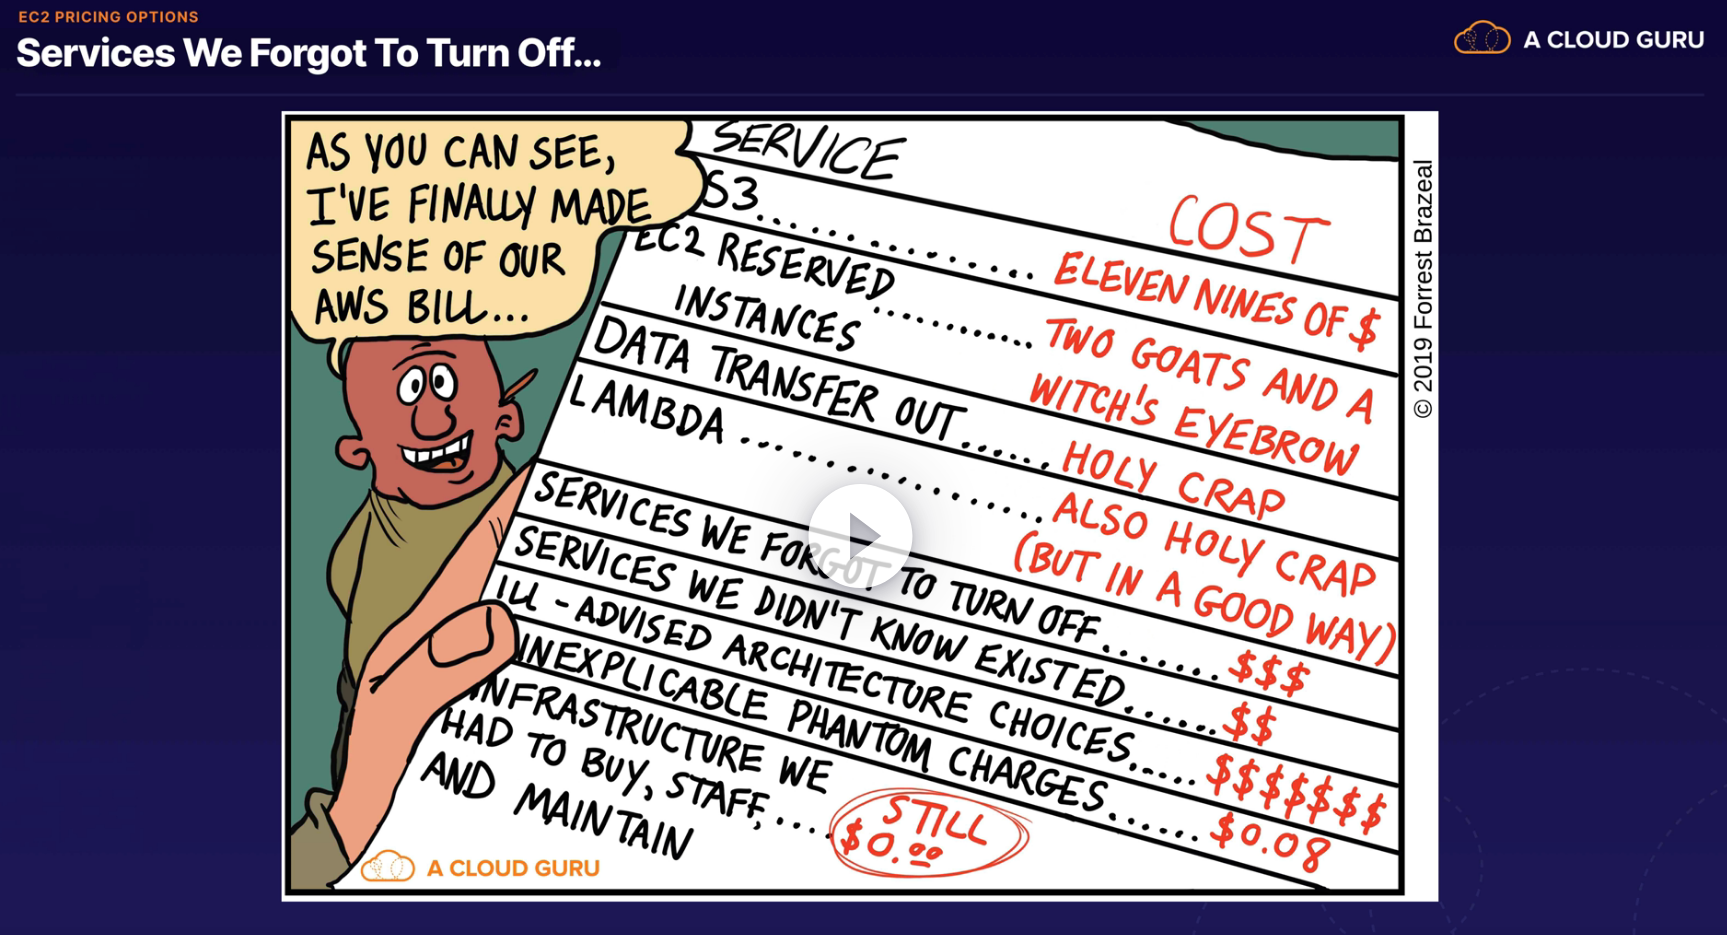 EC2 PRICING OPTIONS
Services We Forgot To Turn Off...
A CLOUD GURU
AS YOU CAN SEE,
I'VE FINALLY MADE
SENSE OF OUR
AWS BILL...
SERVICE
COST
S3.................. ELEVEN NINES OF $
EC2 RESERVED
INSTANCES ............ TWO GOATS AND A
WITCH'S EYEBROW
DATA TRANSFER OUT....... HOLY CRAP
LAMBDA .................... ALSO HOLY CRAP
(BUT IN A GOOD WAY)
SERVICES WE FORGOT TO TURN OFF....... $$$
SERVICES WE DIDN'T KNOW EXISTED...... $$
ILL-ADVISED ARCHITECTURE CHOICES..... $$$$$$$
INEXPLICABLE PHANTOM CHARGES...... $0.08
INFRASTRUCTURE WE
HAD TO BUY, STAFF,....
AND MAINTAIN
STILL
$0.00
A CLOUD GURU
© 2019 Forrest Brazeal